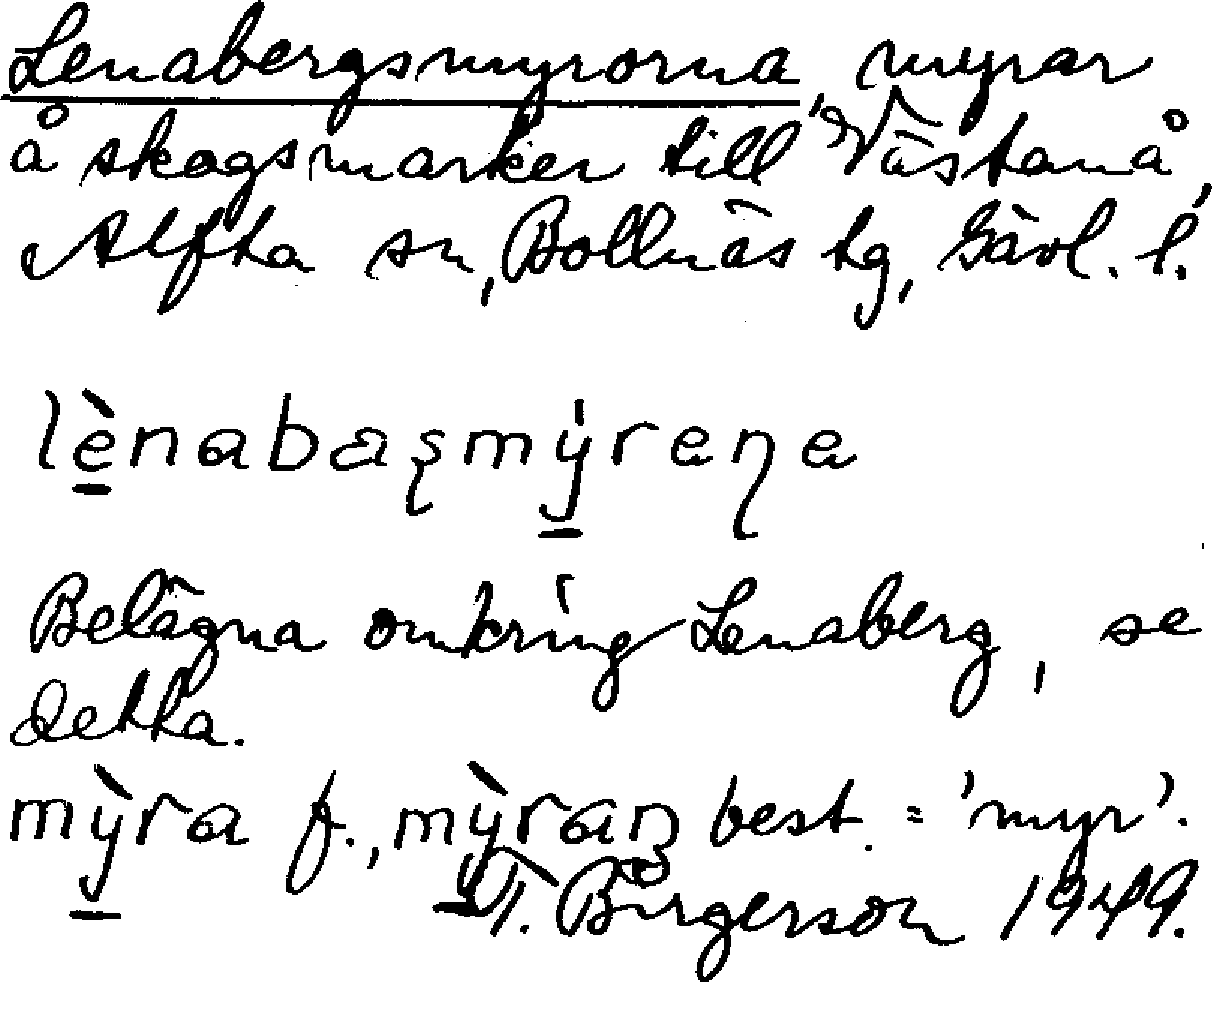 Lenabergsmyrorna, myrar
å skogsmarker till Västanå,
Alfta sn, Bollnäs tg, Gävl. l.
lènabaʂmýreɳa
Belägna omkring Lenaberg, se
detta.
mỳra f., mỳran best. = 'myr'.
T. Birgerson 1949.